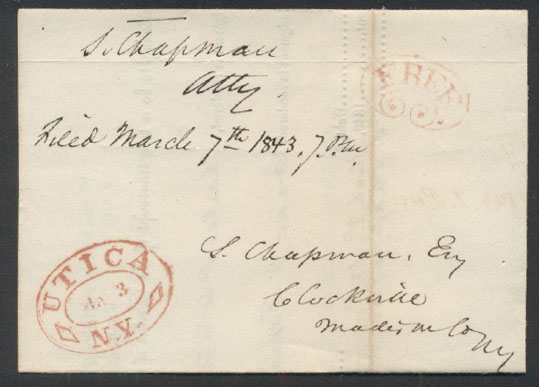 S. Chapman
Atty
Filed March 7th 1843. 7 P.M.
FREE
S. Chapman, Esq
Clockville
Madison Co
NY
UTICA
3
N.Y.